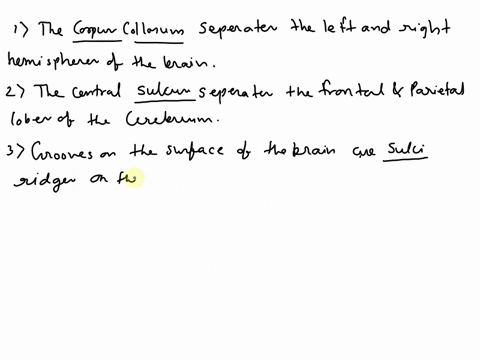 1) The Corpus Collosum seperates the left and right
hemispheres of the brain.
2) The central sulcus seperates the frontal & Parietal
lobes of the Cerebrum.
3) Grooves on the surface of the brain are Sulci
ridges on th